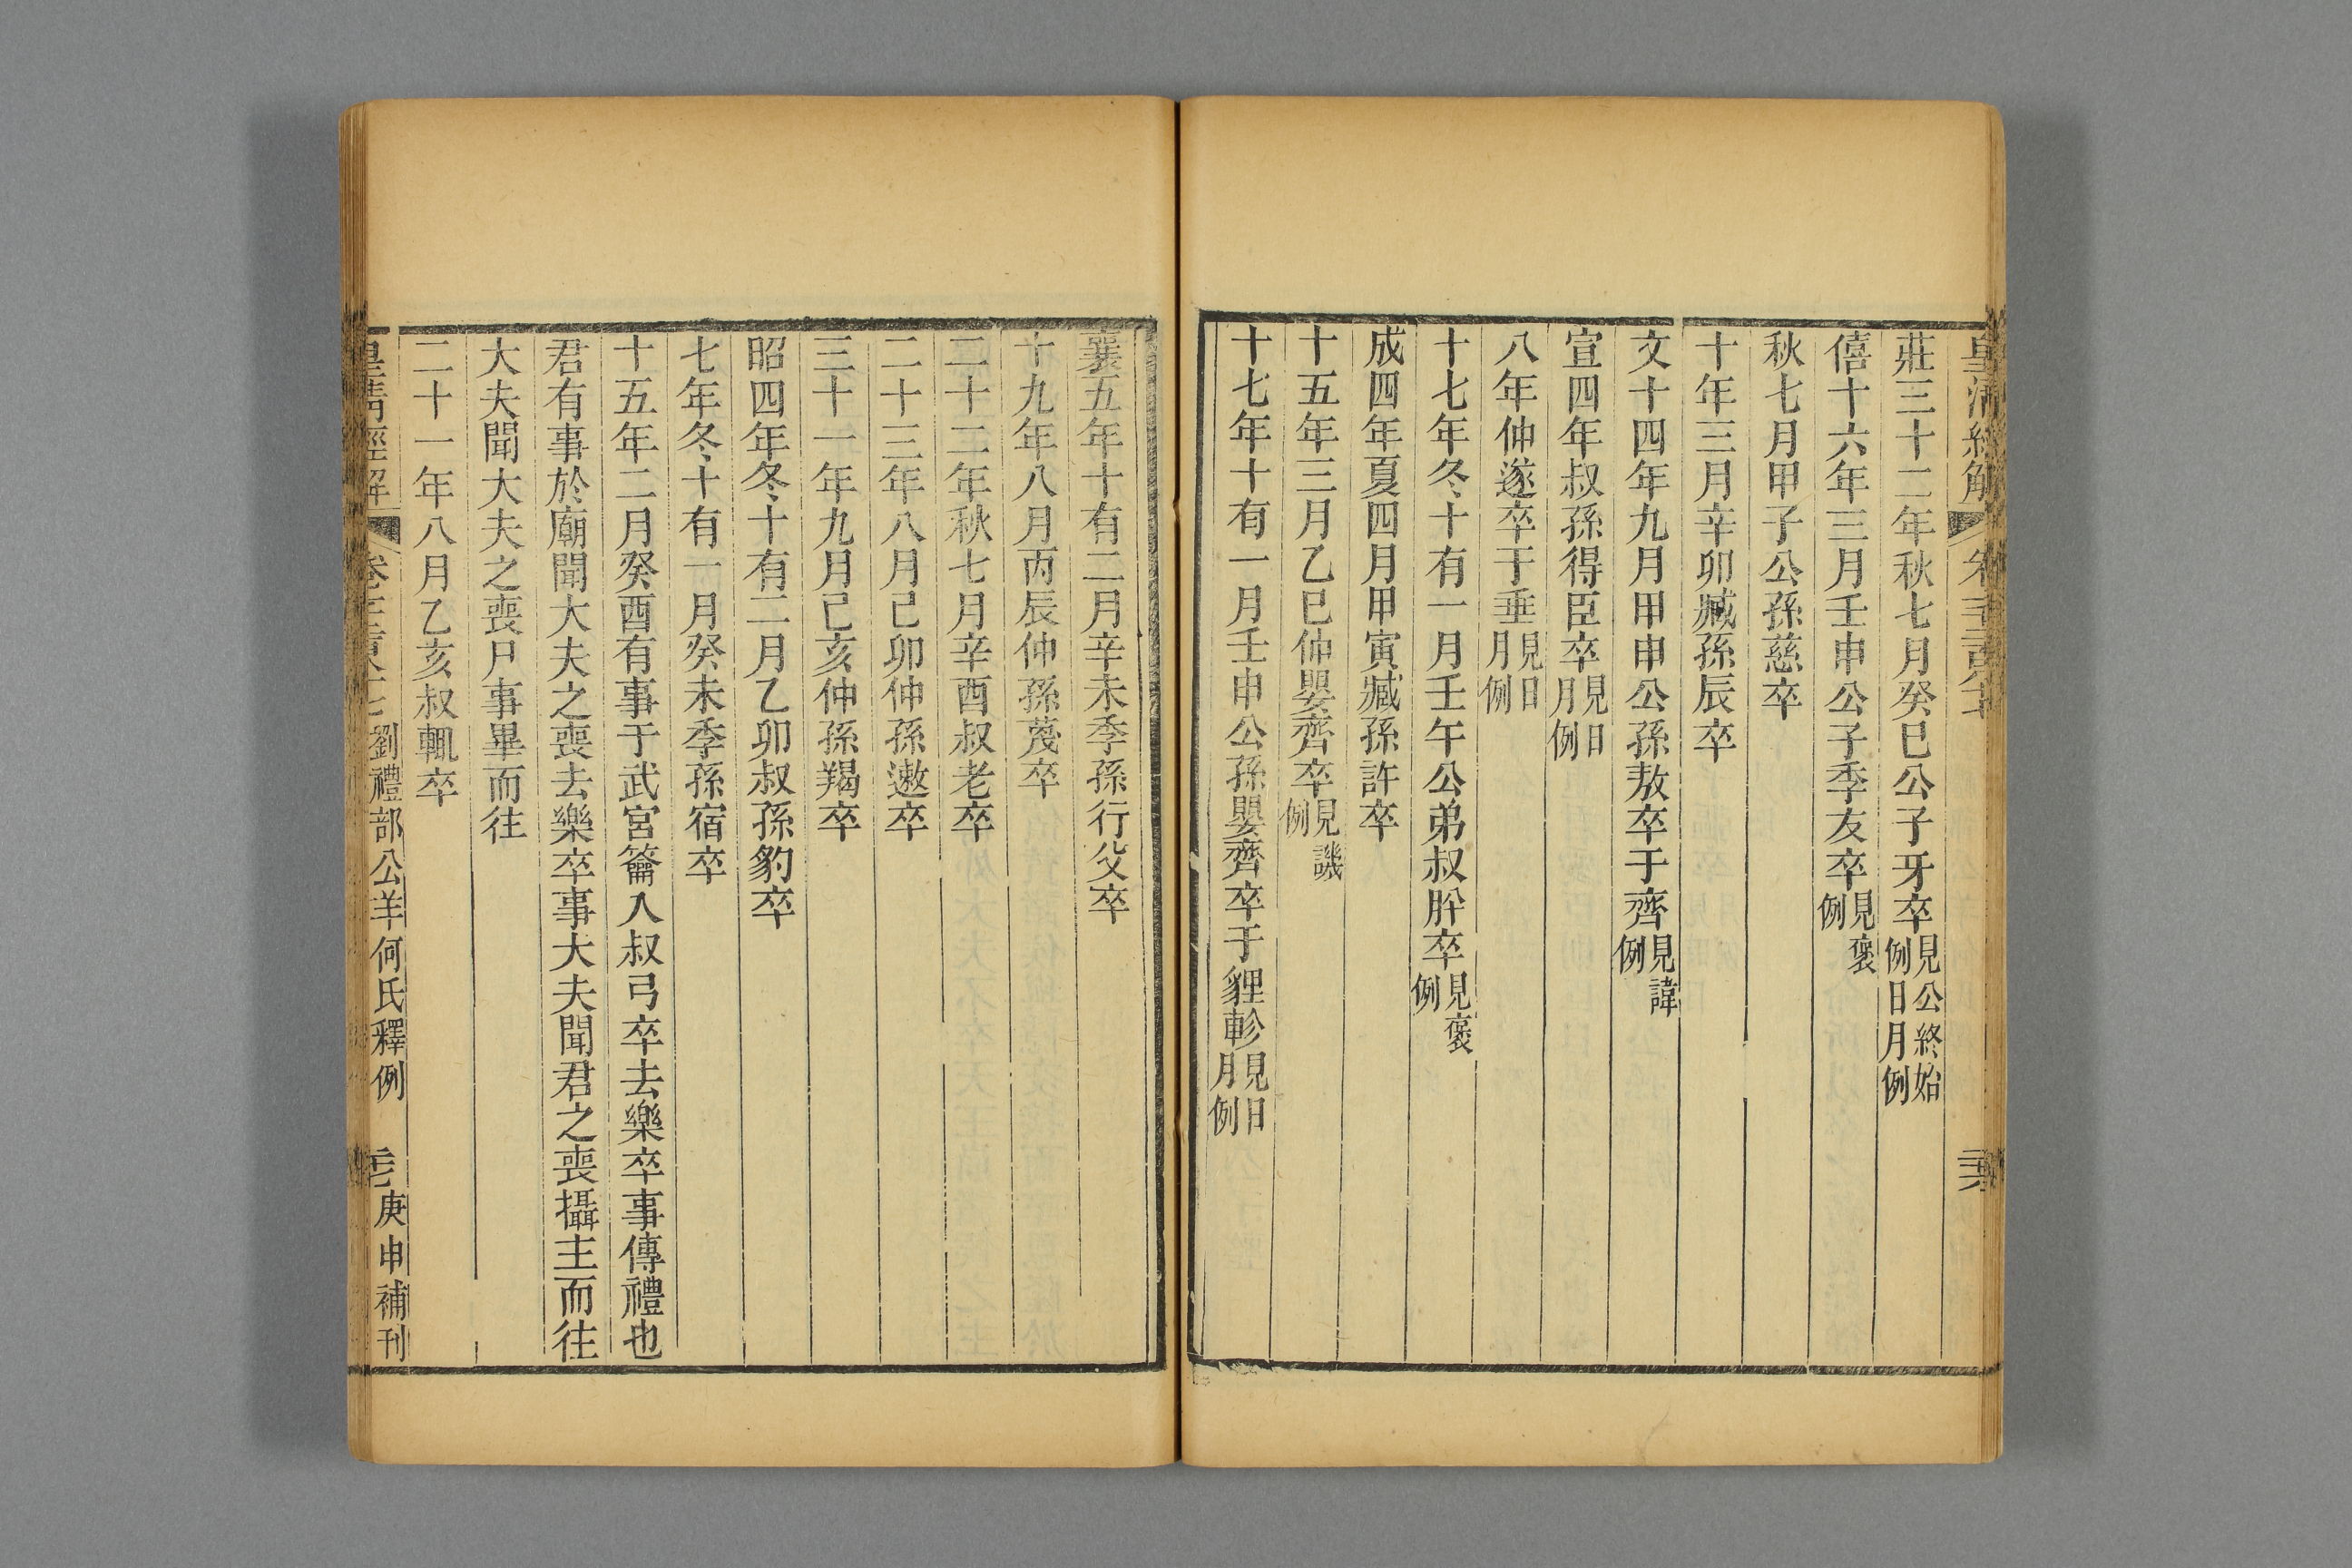 皇清經解
莊三十二年秋七月癸巳公子牙卒見公終始例日月例
僖十六年三月壬申公子季友卒見褒例
秋七月甲子公孫慈卒
十年三月辛卯臧孫辰卒
文十四年九月甲申公孫敖卒于齊見諱例
宣四年叔孫得臣卒見日月例
八年仲遂卒于垂見日月例
十七年冬十有一月壬午公弟叔肸卒見褒例
成四年夏四月甲寅臧孫許卒
十五年三月乙巳仲嬰齊卒見譏例
十七年十有一月壬申公孫嬰齊卒于貍軫見日月例
襄五年十有二月辛未季孫行父卒
十九年八月丙辰仲孫蔑卒
二十二年秋七月辛酉叔老卒
二十三年八月己卯仲孫遬卒
三十一年九月己亥仲孫羯卒
昭四年冬十有二月乙卯叔孫豹卒
七年冬十有一月癸未季孫宿卒
十五年二月癸酉有事于武宮籥入叔弓卒去樂卒事傳禮也
君有事於廟聞大夫之喪去樂卒事大夫聞君之喪攝主而往
大夫聞大夫之喪尸事畢而往
二十一年八月乙亥叔輒卒
皇清經解 劉禮部公羊何氏釋例 庚申補刊